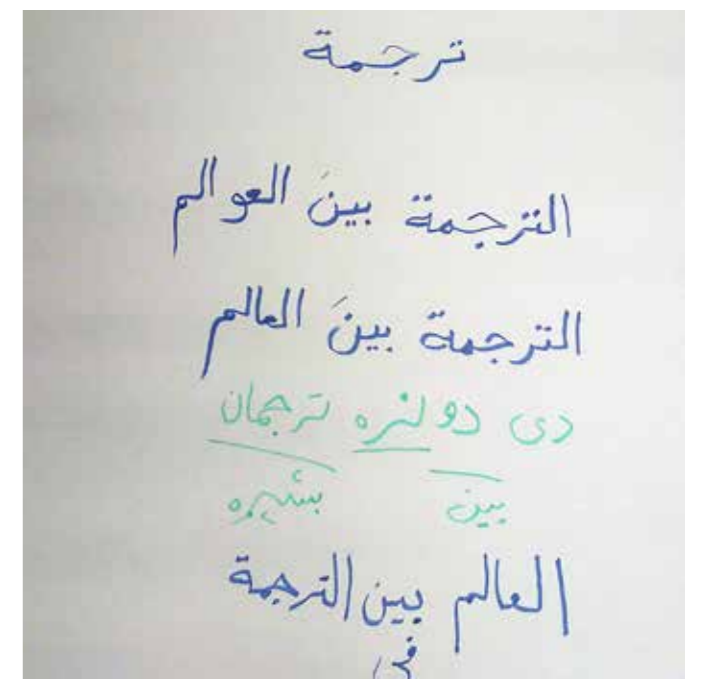 ترجمة
الترجمة بينَ العوالم
الترجمة بينَ العالم
دی دولنره ترجمان
بين بشیره
العالم بين الترجمة
في